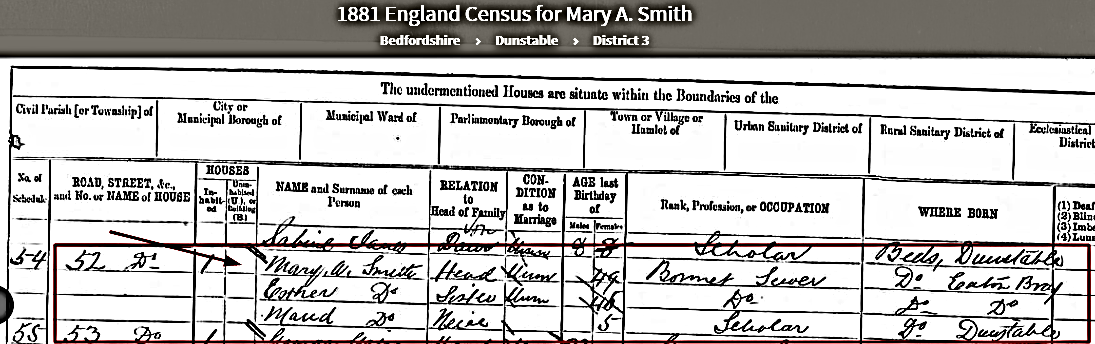 1881 England Census for Mary A. Smith
Bedfordshire > Dunstable > District 3
The undermentioned Houses are situate within the Boundaries of the
Civil Parish [or Township] of City or Municipal Borough of Municipal Ward of Parliamentary Borough of Town or Village or Hamlet of Urban Sanitary District of Rural Sanitary District of Ecclesiastical District
No. of Schedule ROAD, STREET, &c., and No. or NAME of HOUSE HOUSES In-habit-ed Unin-habited (U.), or Building (B.) NAME and Surname of each Person RELATION to Head of Family CON-DITION as to Marriage AGE last Birthday of Males Females Rank, Profession, or OCCUPATION WHERE BORN
(1) Deaf
(2) Blind
(3) Imbe
(4) Luna
Scholar Beds, Dunstable
54 52 Do 1 Mary A. Smith Head Unm 49 Bonnet Sewer Do Eaton Bray
Esther Do Sister Unm Do Do Do
Maud Do Neice 5 Scholar Do Dunstable
55 53 Do 1